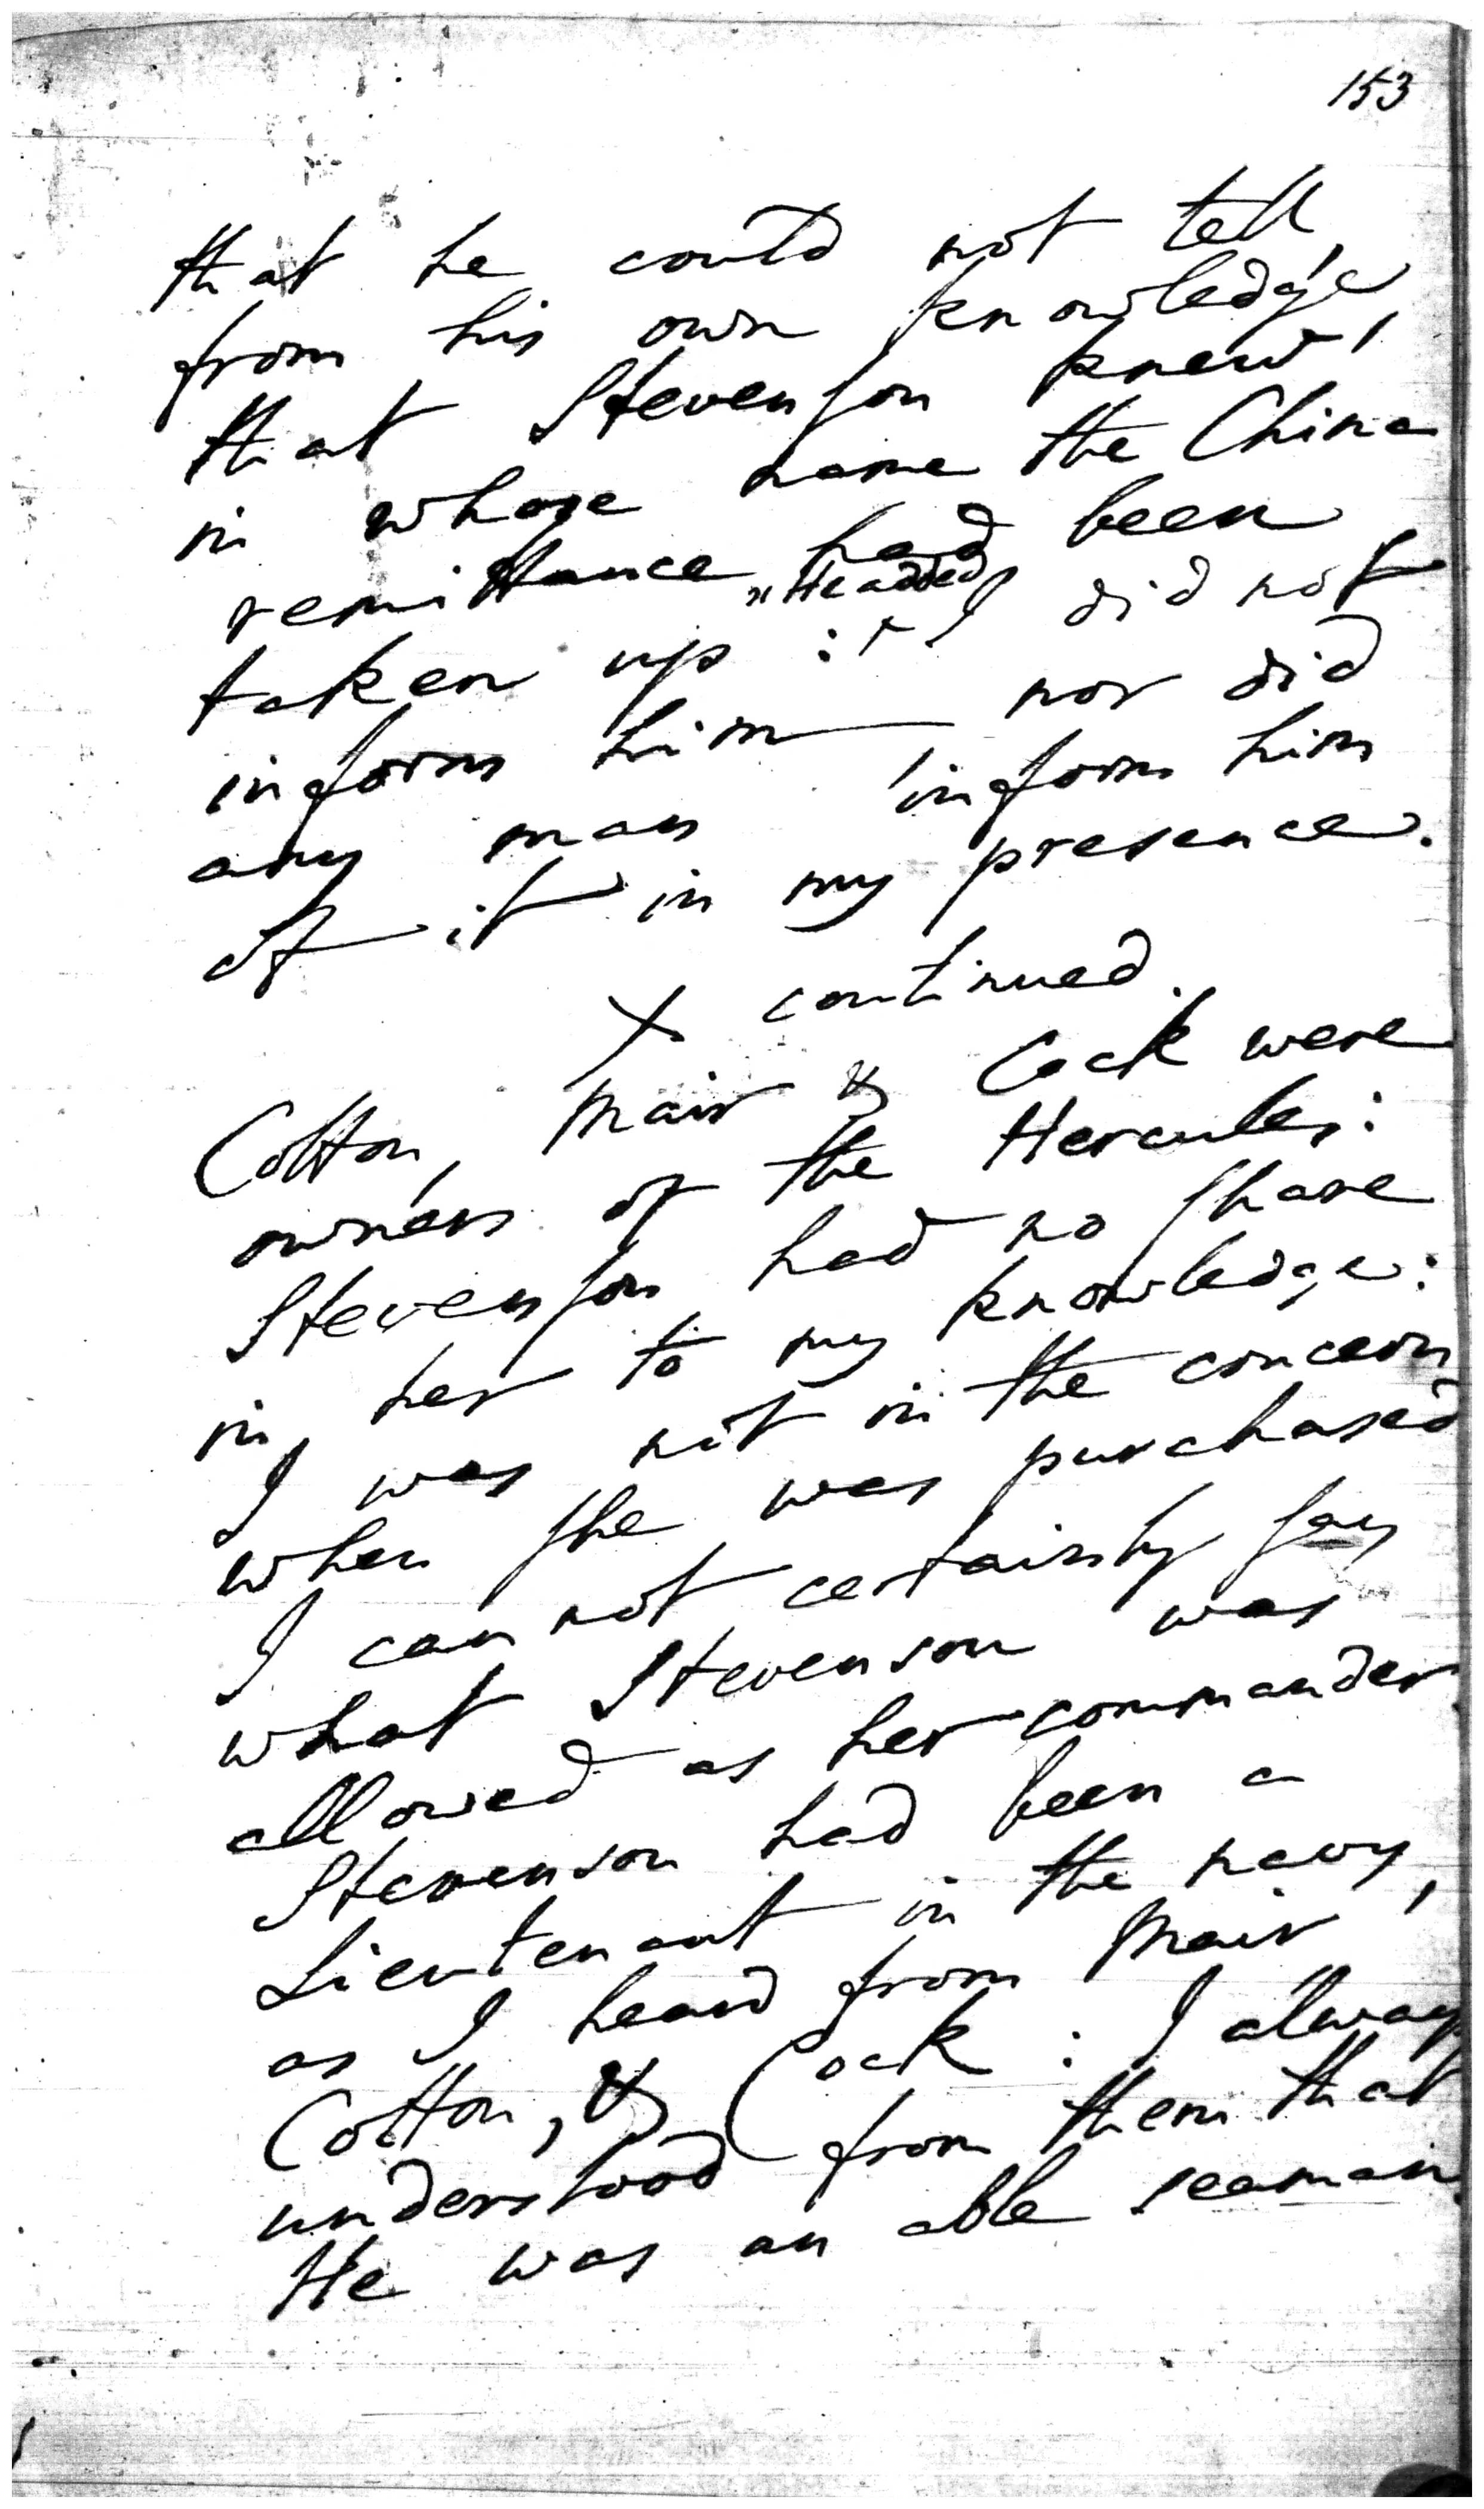 153
that he could not tell,
from his own knowledge,
that Stevenson knew,
in whose name the China
remittance had been
"He added
taken up : + I did not
inform him nor did
any man inform him
of it in my presence.
X continued.
Cotton, Mair & Cock were
owners of the Hercules:
Stevenson had no share
in her to my knowledge:
I was not in the concern
when she was purchased
I can not certainly say
what Stevenson was
allowed as her commander
Stevenson had been a
Lieutenant in the navy,
as I heard from Mair,
Cotton, & Cock : I always
understood from them that
He was an able seaman.